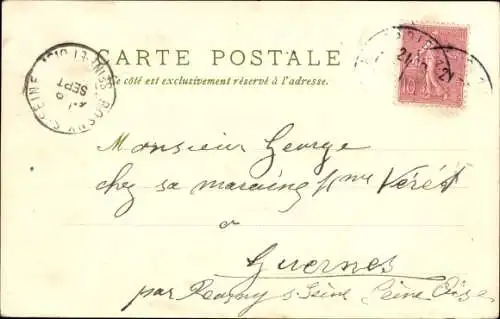 CARTE POSTALE
Ce côté est exclusivement réservé à l'adresse.
ROSNY S SEINE
SEINE-ET-OISE
SEPT
10
21
Monsieur George
chez sa marraine Mme Vérét
a
Guernes
par Rosny s Seine Seine Oise